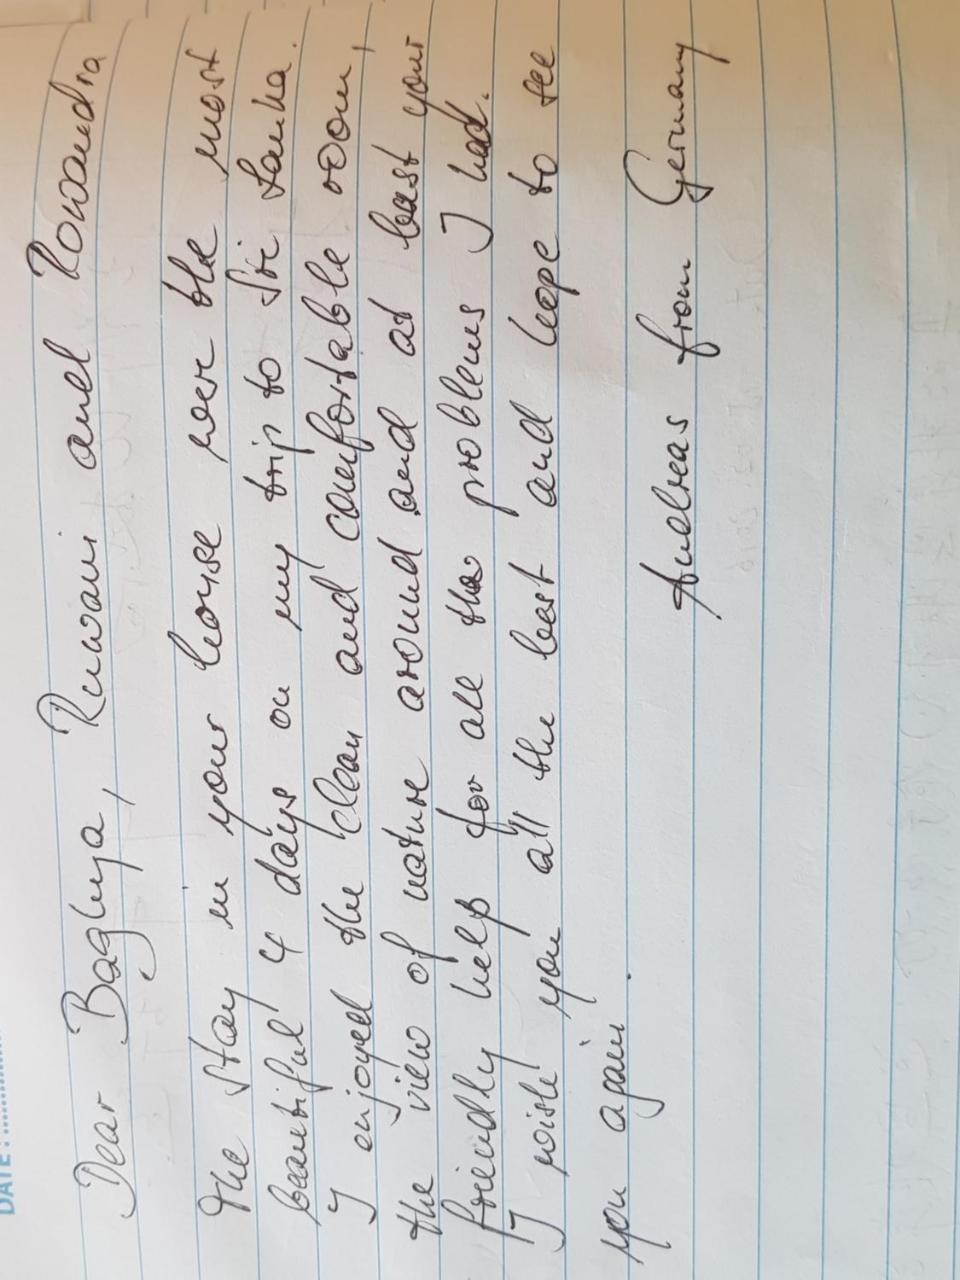 DATE :
Dear Baghya, Ruwani and Rowandra
The stay in your house wer the most
beautiful 4 days on my trip to Sri Lanka.
I enjoyed the clean and comfortable room,
the view of nature around and at least your
friendly help for all the problems I had.
I wish you all the best and hope to see
you again.
Andreas from Germany